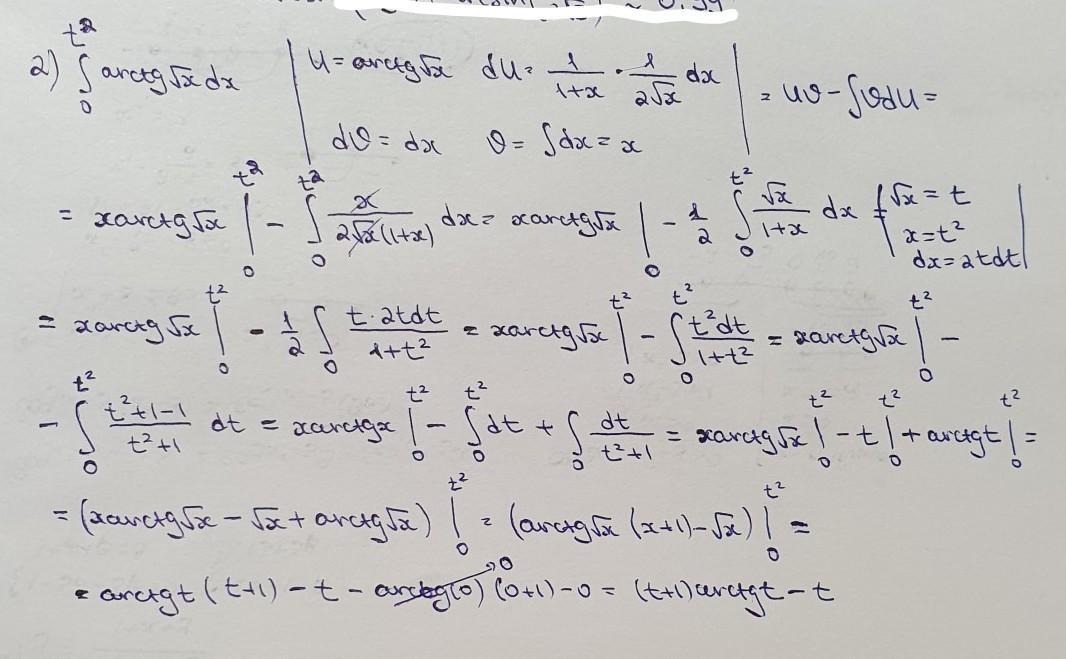 2) ∫₀^{t²} arctg√x dx | u = arctg√x  du = 1/(1+x) · 1/(2√x) dx  dϑ = dx  ϑ = ∫dx = x | = uϑ - ∫ϑdu =
= xarctg√x |₀^{t²} - ∫₀^{t²} x/(2√x(1+x)) dx = xarctg√x |₀^{t²} - 1/2 ∫₀^{t²} √x/(1+x) dx = | √x = t  x = t²  dx = 2tdt |
= xarctg√x |₀^{t²} - 1/2 ∫₀^{t²} t·2tdt/(1+t²) = xarctg√x |₀^{t²} - ∫₀^{t²} t²dt/(1+t²) = xarctg√x |₀^{t²} -
- ∫₀^{t²} (t²+1-1)/(t²+1) dt = xarctgx |₀^{t²} - ∫₀^{t²} dt + ∫₀^{t²} dt/(t²+1) = xarctg√x |₀^{t²} - t |₀^{t²} + arctgt |₀^{t²} =
= (xarctg√x - √x + arctg√x) |₀^{t²} = (arctg√x (x+1) - √x) |₀^{t²} =
= arctgt (t+1) - t - arctg(0) (0+1) - 0 = (t+1)arctgt - t